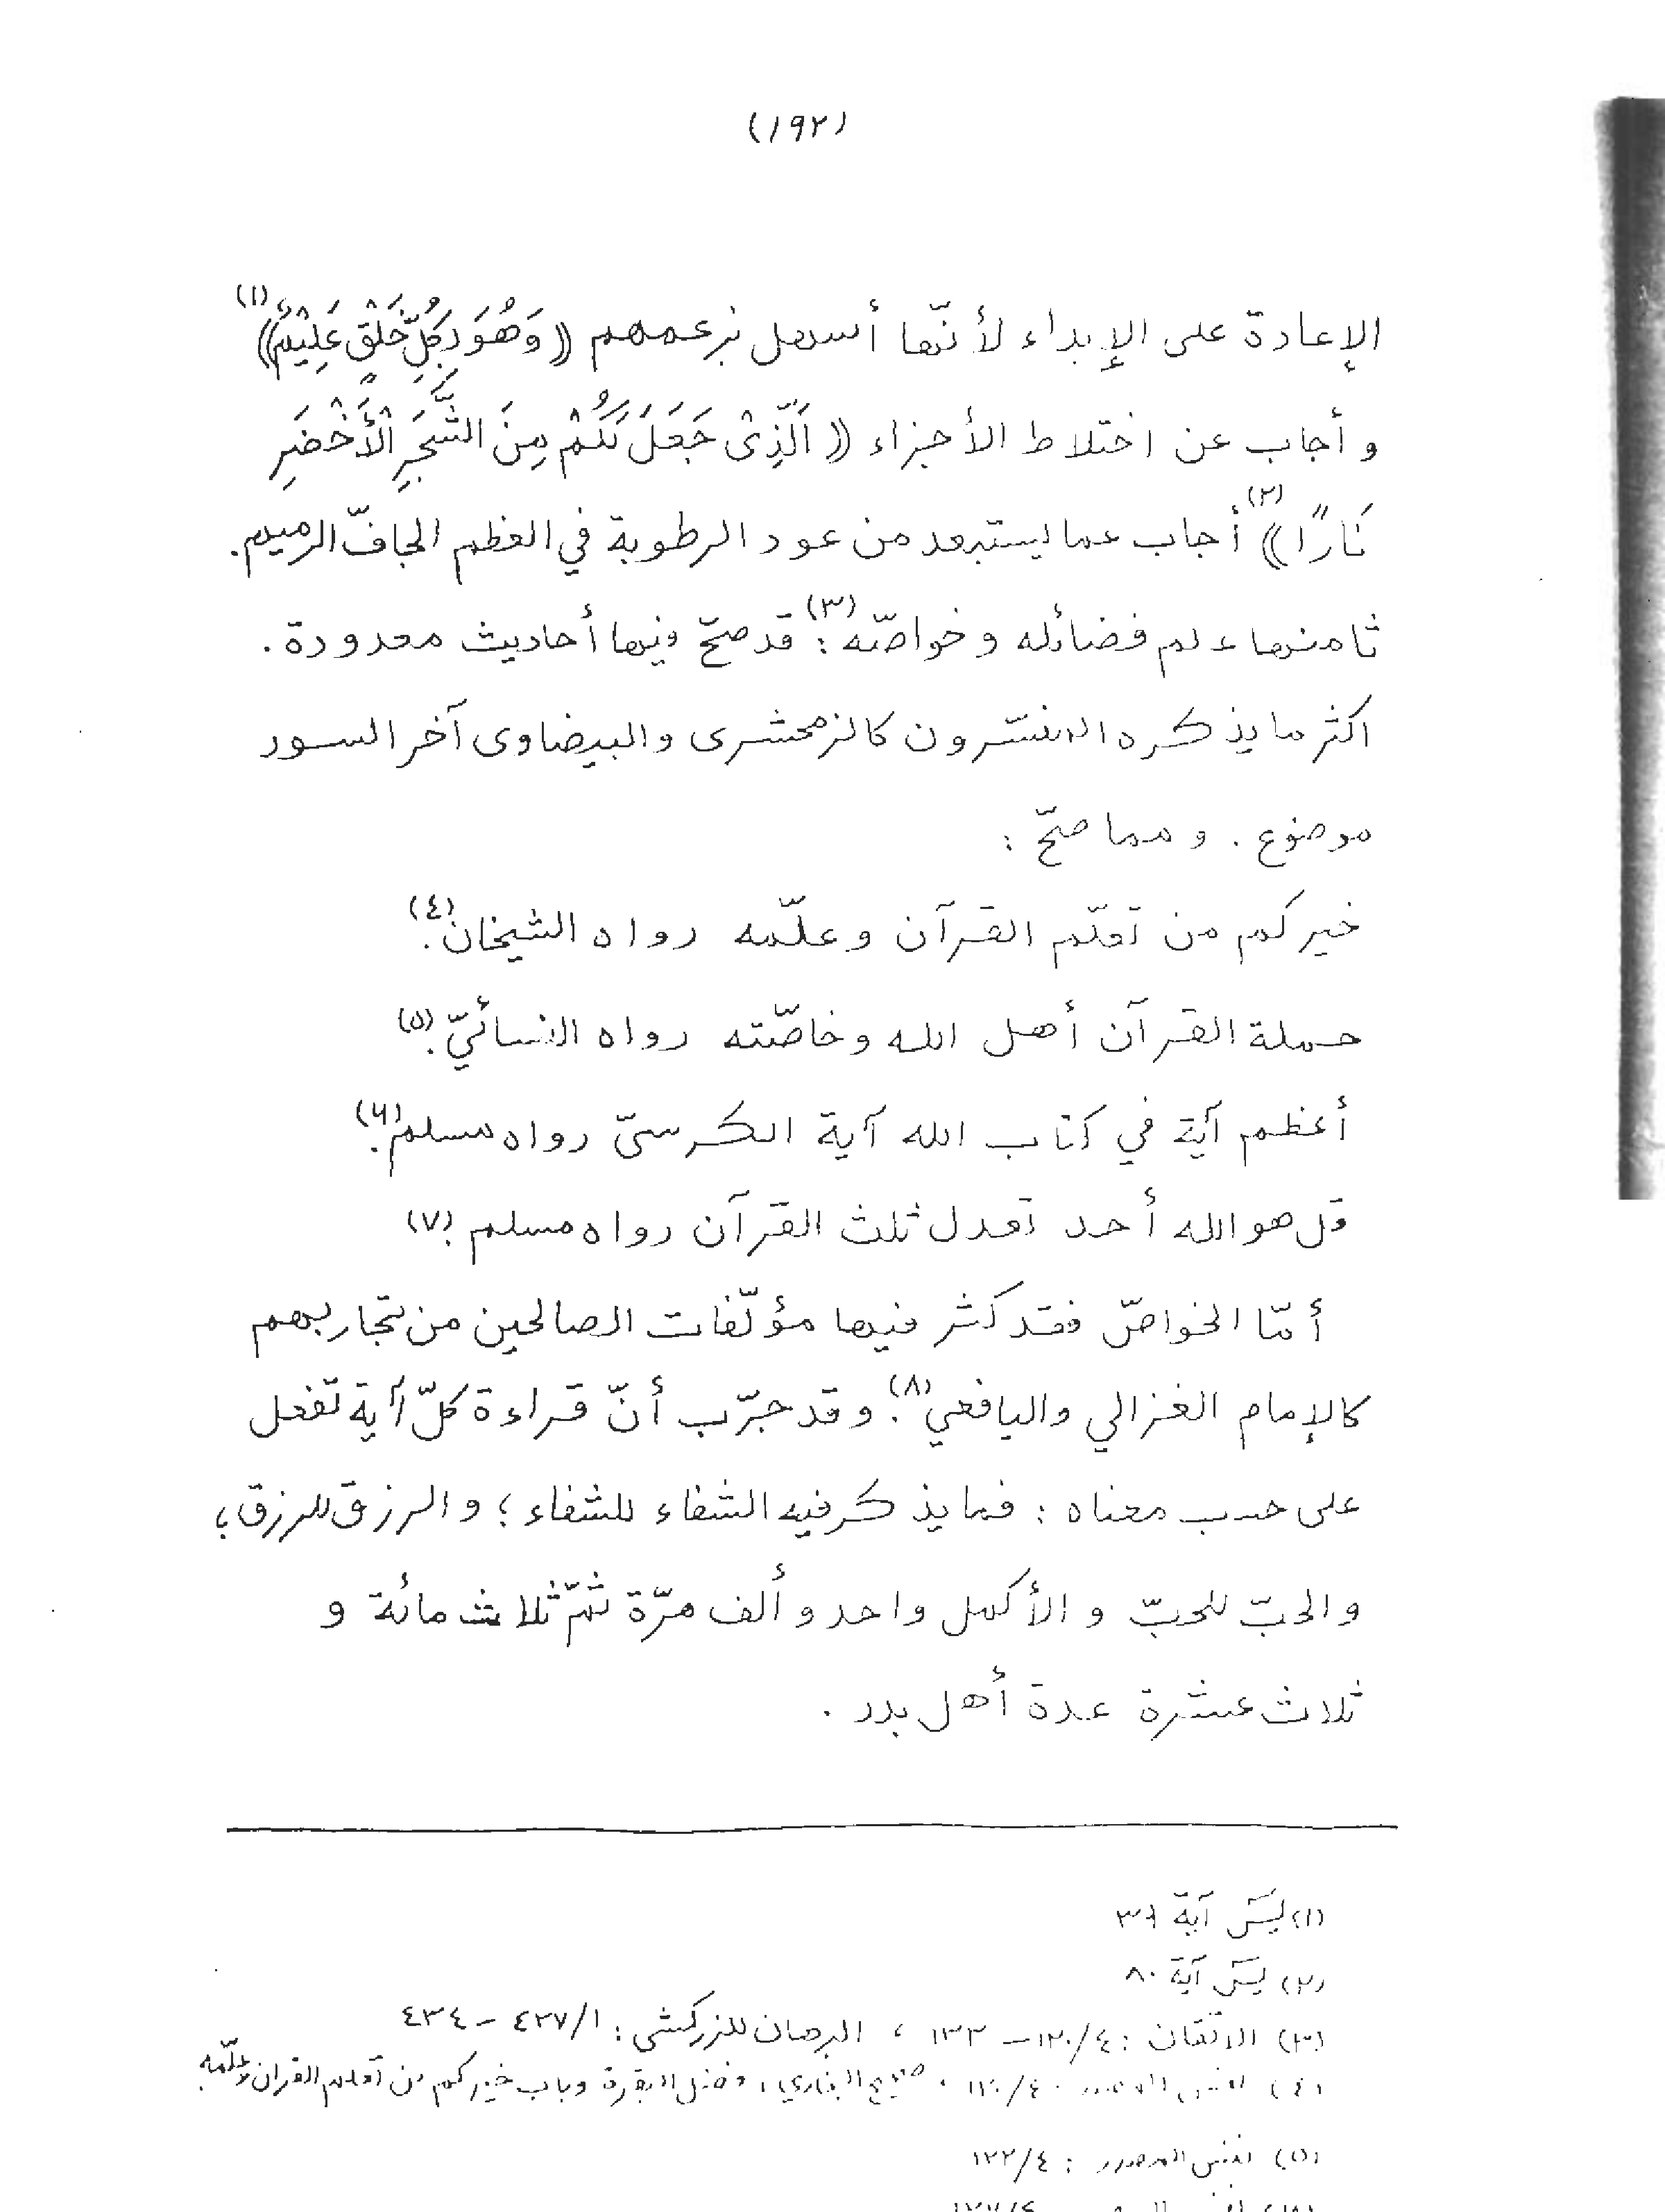 (١٩٢)
الإعادة على الإبداء لأنّها أسهل بزعمهم ((وَهُوَ بِكُلِّ خَلْقٍ عَلِيْمٌ))(١)
و أجاب عن اختلاط الأجزاء ((اَلَّذِىْ جَعَلَ لَكُمْ مِنَ الشَّجَرِ الْأَخْضَرِ
نَارًا))(٢) أجاب عما يستبعد من عود الرطوبة في العظم الجافّ الرميم.
ثامنها علم فضائله و خواصّه(٣): قد صحّ فيها أحاديث معدودة.
اكثر ما يذكره المفسّرون كالزمخشرى والبيضاوى آخر السور
موضوع. و مما صحّ:
خيركم من تعلّم القرآن وعلّمه رواه الشيخان(٤).
حملة القرآن أهل الله وخاصّته رواه النسائيّ.(٥)
أعظم آية في كتاب الله آية الكرسيّ رواه مسلم(٦).
قل هو الله أحد تعدل ثلث القرآن رواه مسلم.(٧)
أمّا الخواصّ فقد كثر فيها مؤلّفات الصالحين من تجاربهم
كالإمام الغزالي واليافعي(٨). وقد جرّب أنّ قراءة كلّ آية تفعل
على حسب معناه: فما يذكر فيه الشفاء للشفاء؛ والرزق للرزق؛
والحبّ للحبّ و الأكمل واحد و ألف مرّة ثمّ ثلاث مائة و
ثلاث عشرة عدة أهل بدر.
(١) يٰسٓ آية
(٢) يٰسٓ آية ٨٠
(٣) الاتقان: ٤/١٢٠ – ١٣٣، البرهان للزركشى: ١/٤٢٧ – ٤٣٤
(٤) نفس المصدر ٤/١٢٠، صحيح البخاري، فضل البقرة وباب خيركم من تعلم القران وعلّمه.
(٥) نفس المصدر: ٤/١٢٢